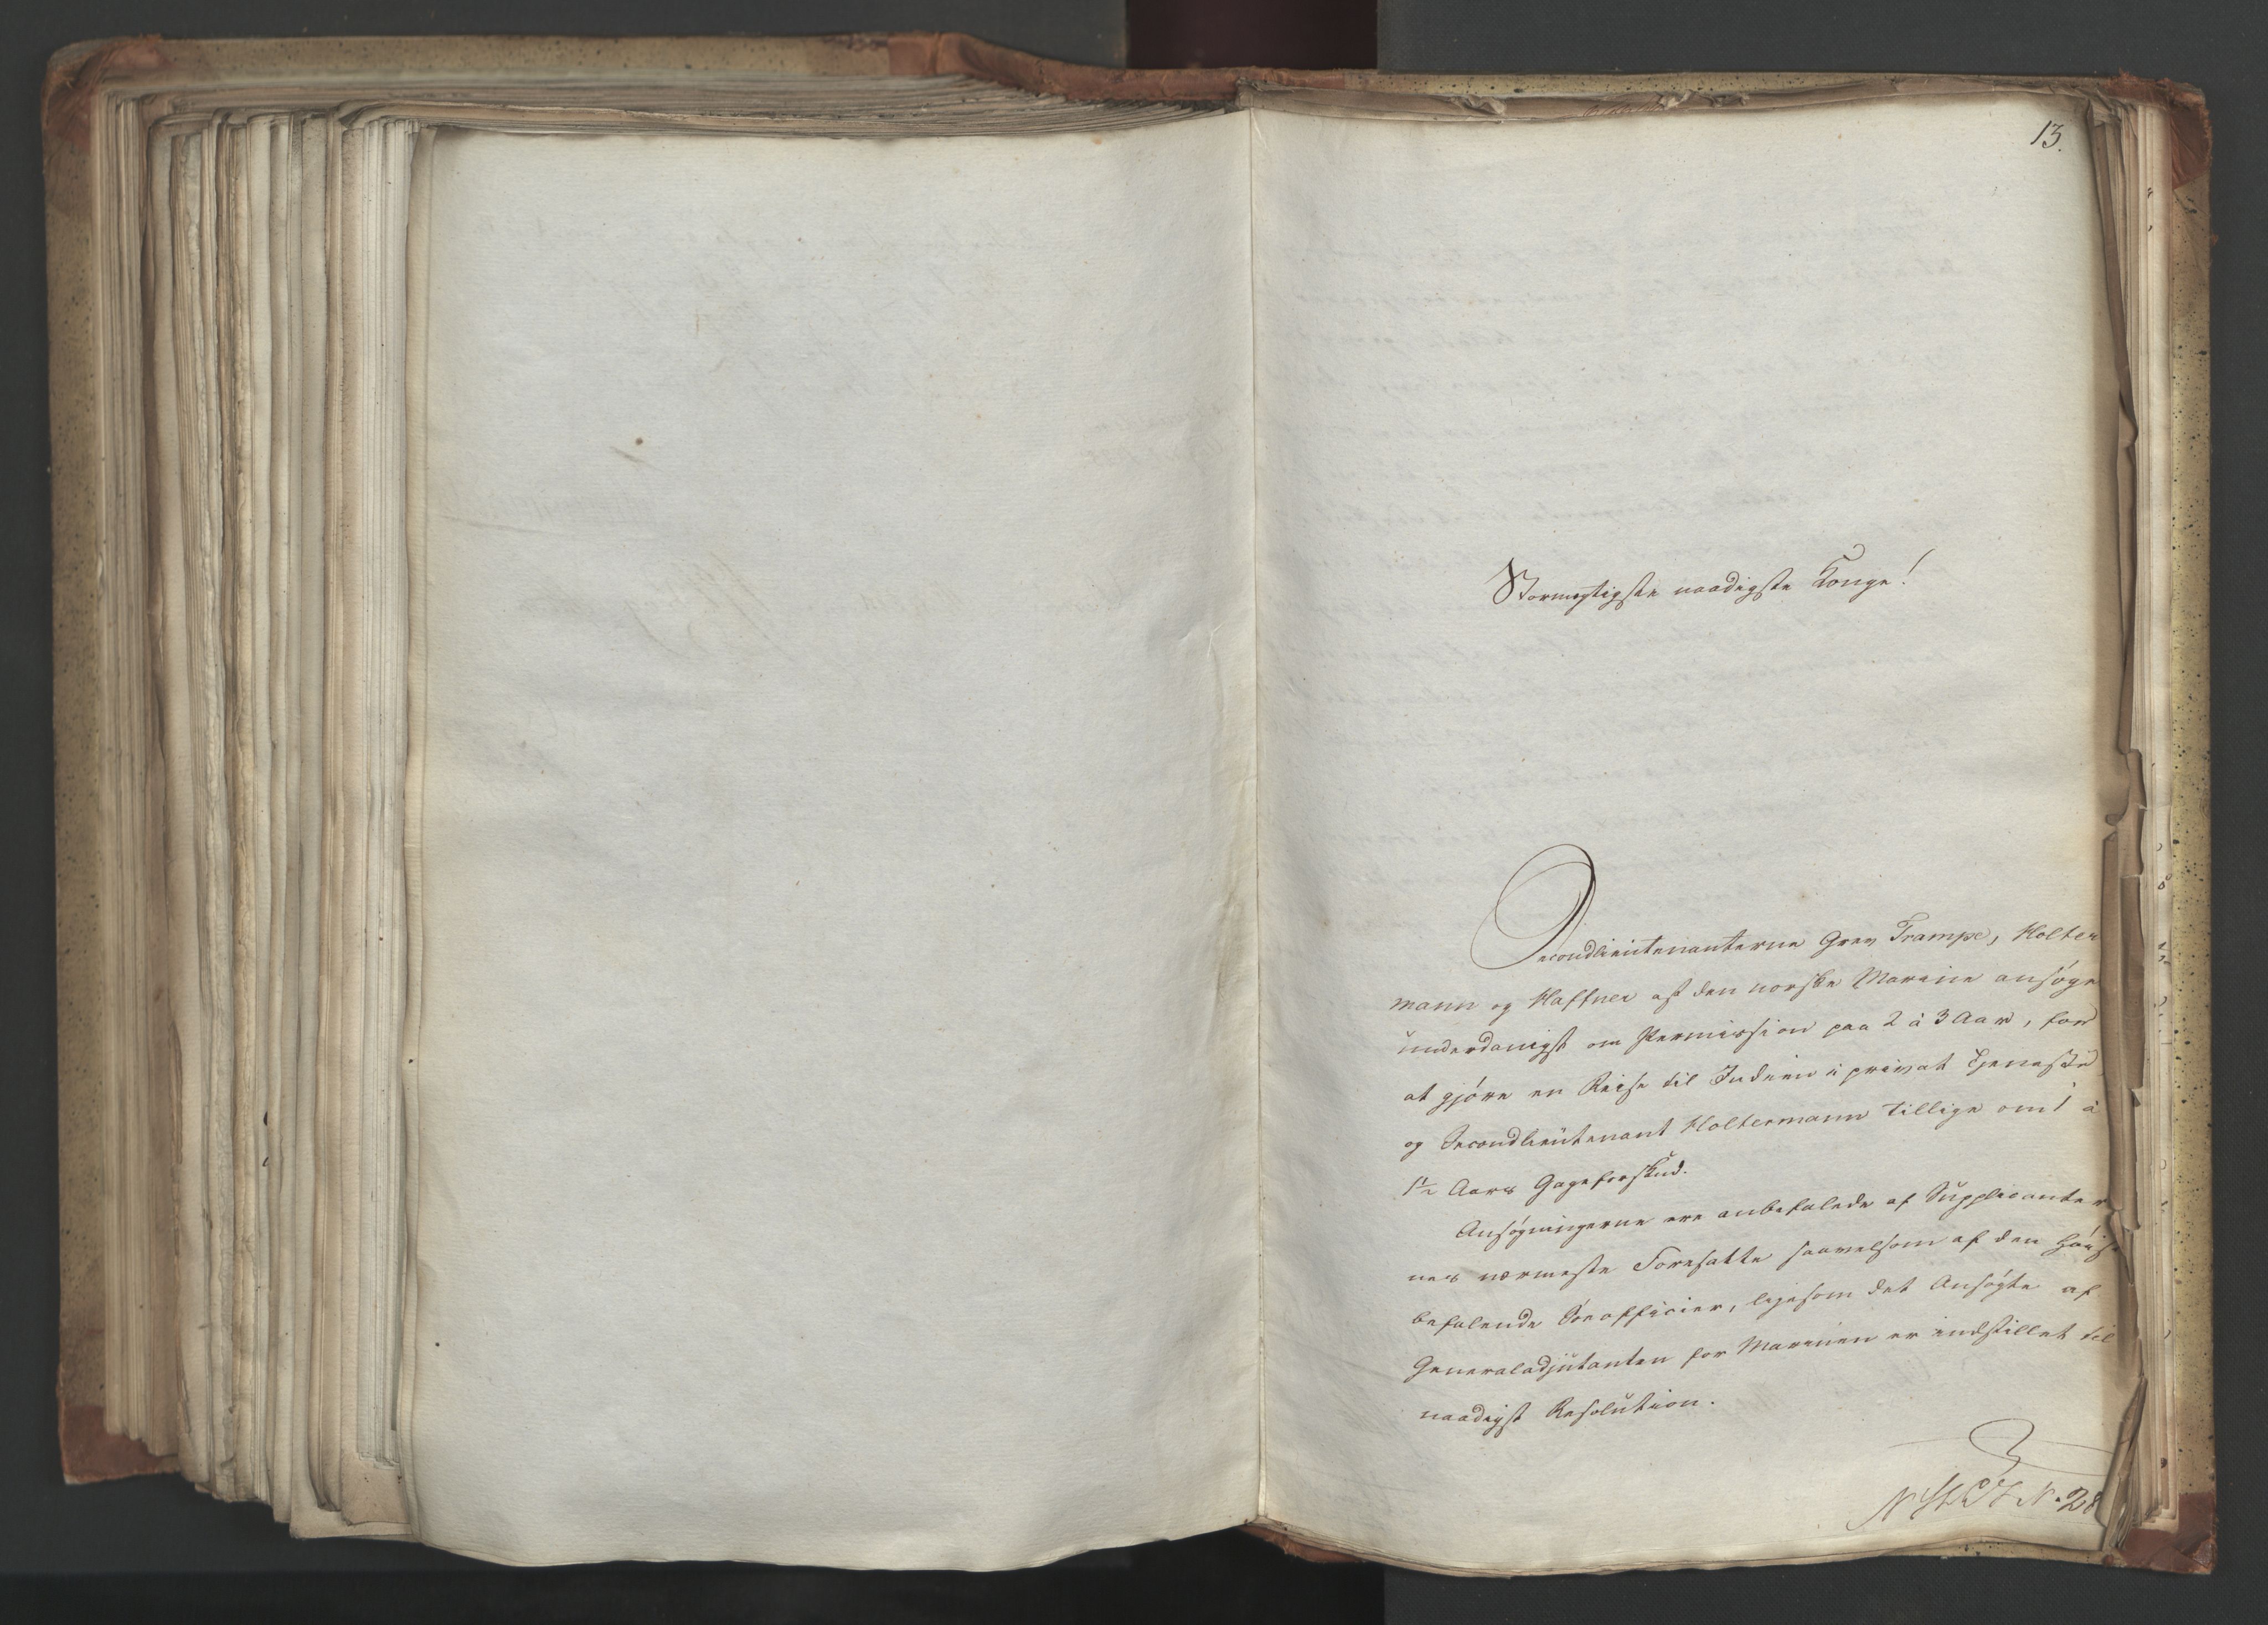 13.
Stormegtigste naadigste Konge!
Secondlieutenanterne Grev Trampe, Holter
mann og Haffner af den norske Marine ansøge
underdanigst om Permission paa 2 à 3 Aar, for
at gjøre en Reise til Indien i privat Tjeneste
og Secondlieutenant Holtermann tillige om 1 à
1½ Aars Gageforskud.
Ansøgningerne ere anbefalede af Supplicanter
nes nærmeste Foresatte saavelsom af den Høist
befalende Søeofficier, ligesom det Ansøgte af
Generaladjutanten for Marinen er indstillet til
naadigst Resolution.